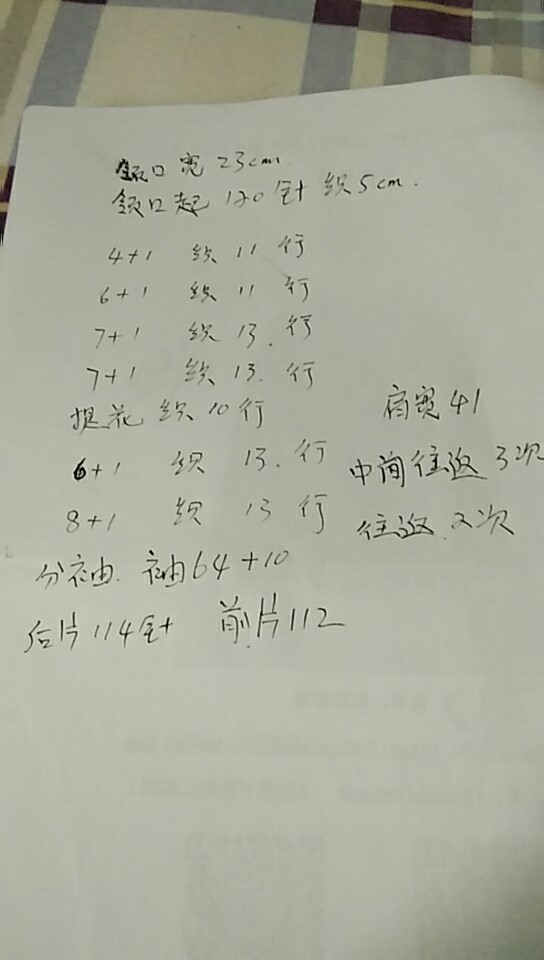 领口宽23cm.
领口起120针 织5cm.
4+1 织 11 行
6+1 织 11 行
7+1 织 13. 行
7+1 织 13. 行
提花 织 10行
肩宽41
6+1 织 13. 行
中间往返3次
8+1 织 13 行
往返.2次
分袖. 袖64+10
后片114针 前片112